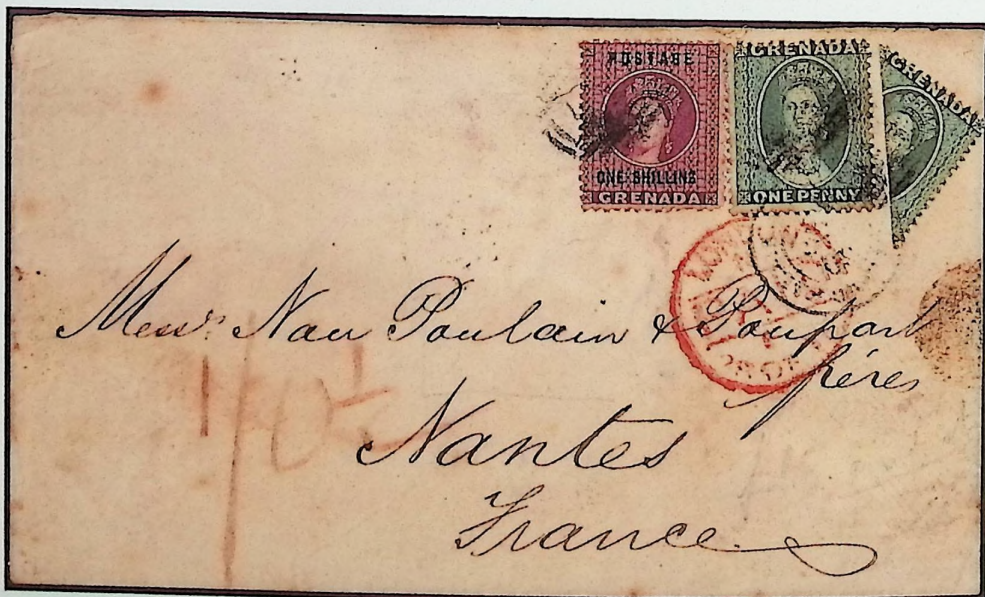 POSTAGE
ONE SHILLING
GRENADA
GRENADA
ONE PENNY
GRENADA
Messrs Nau Poulain & Poupart
frères
1/0½
Nantes
France